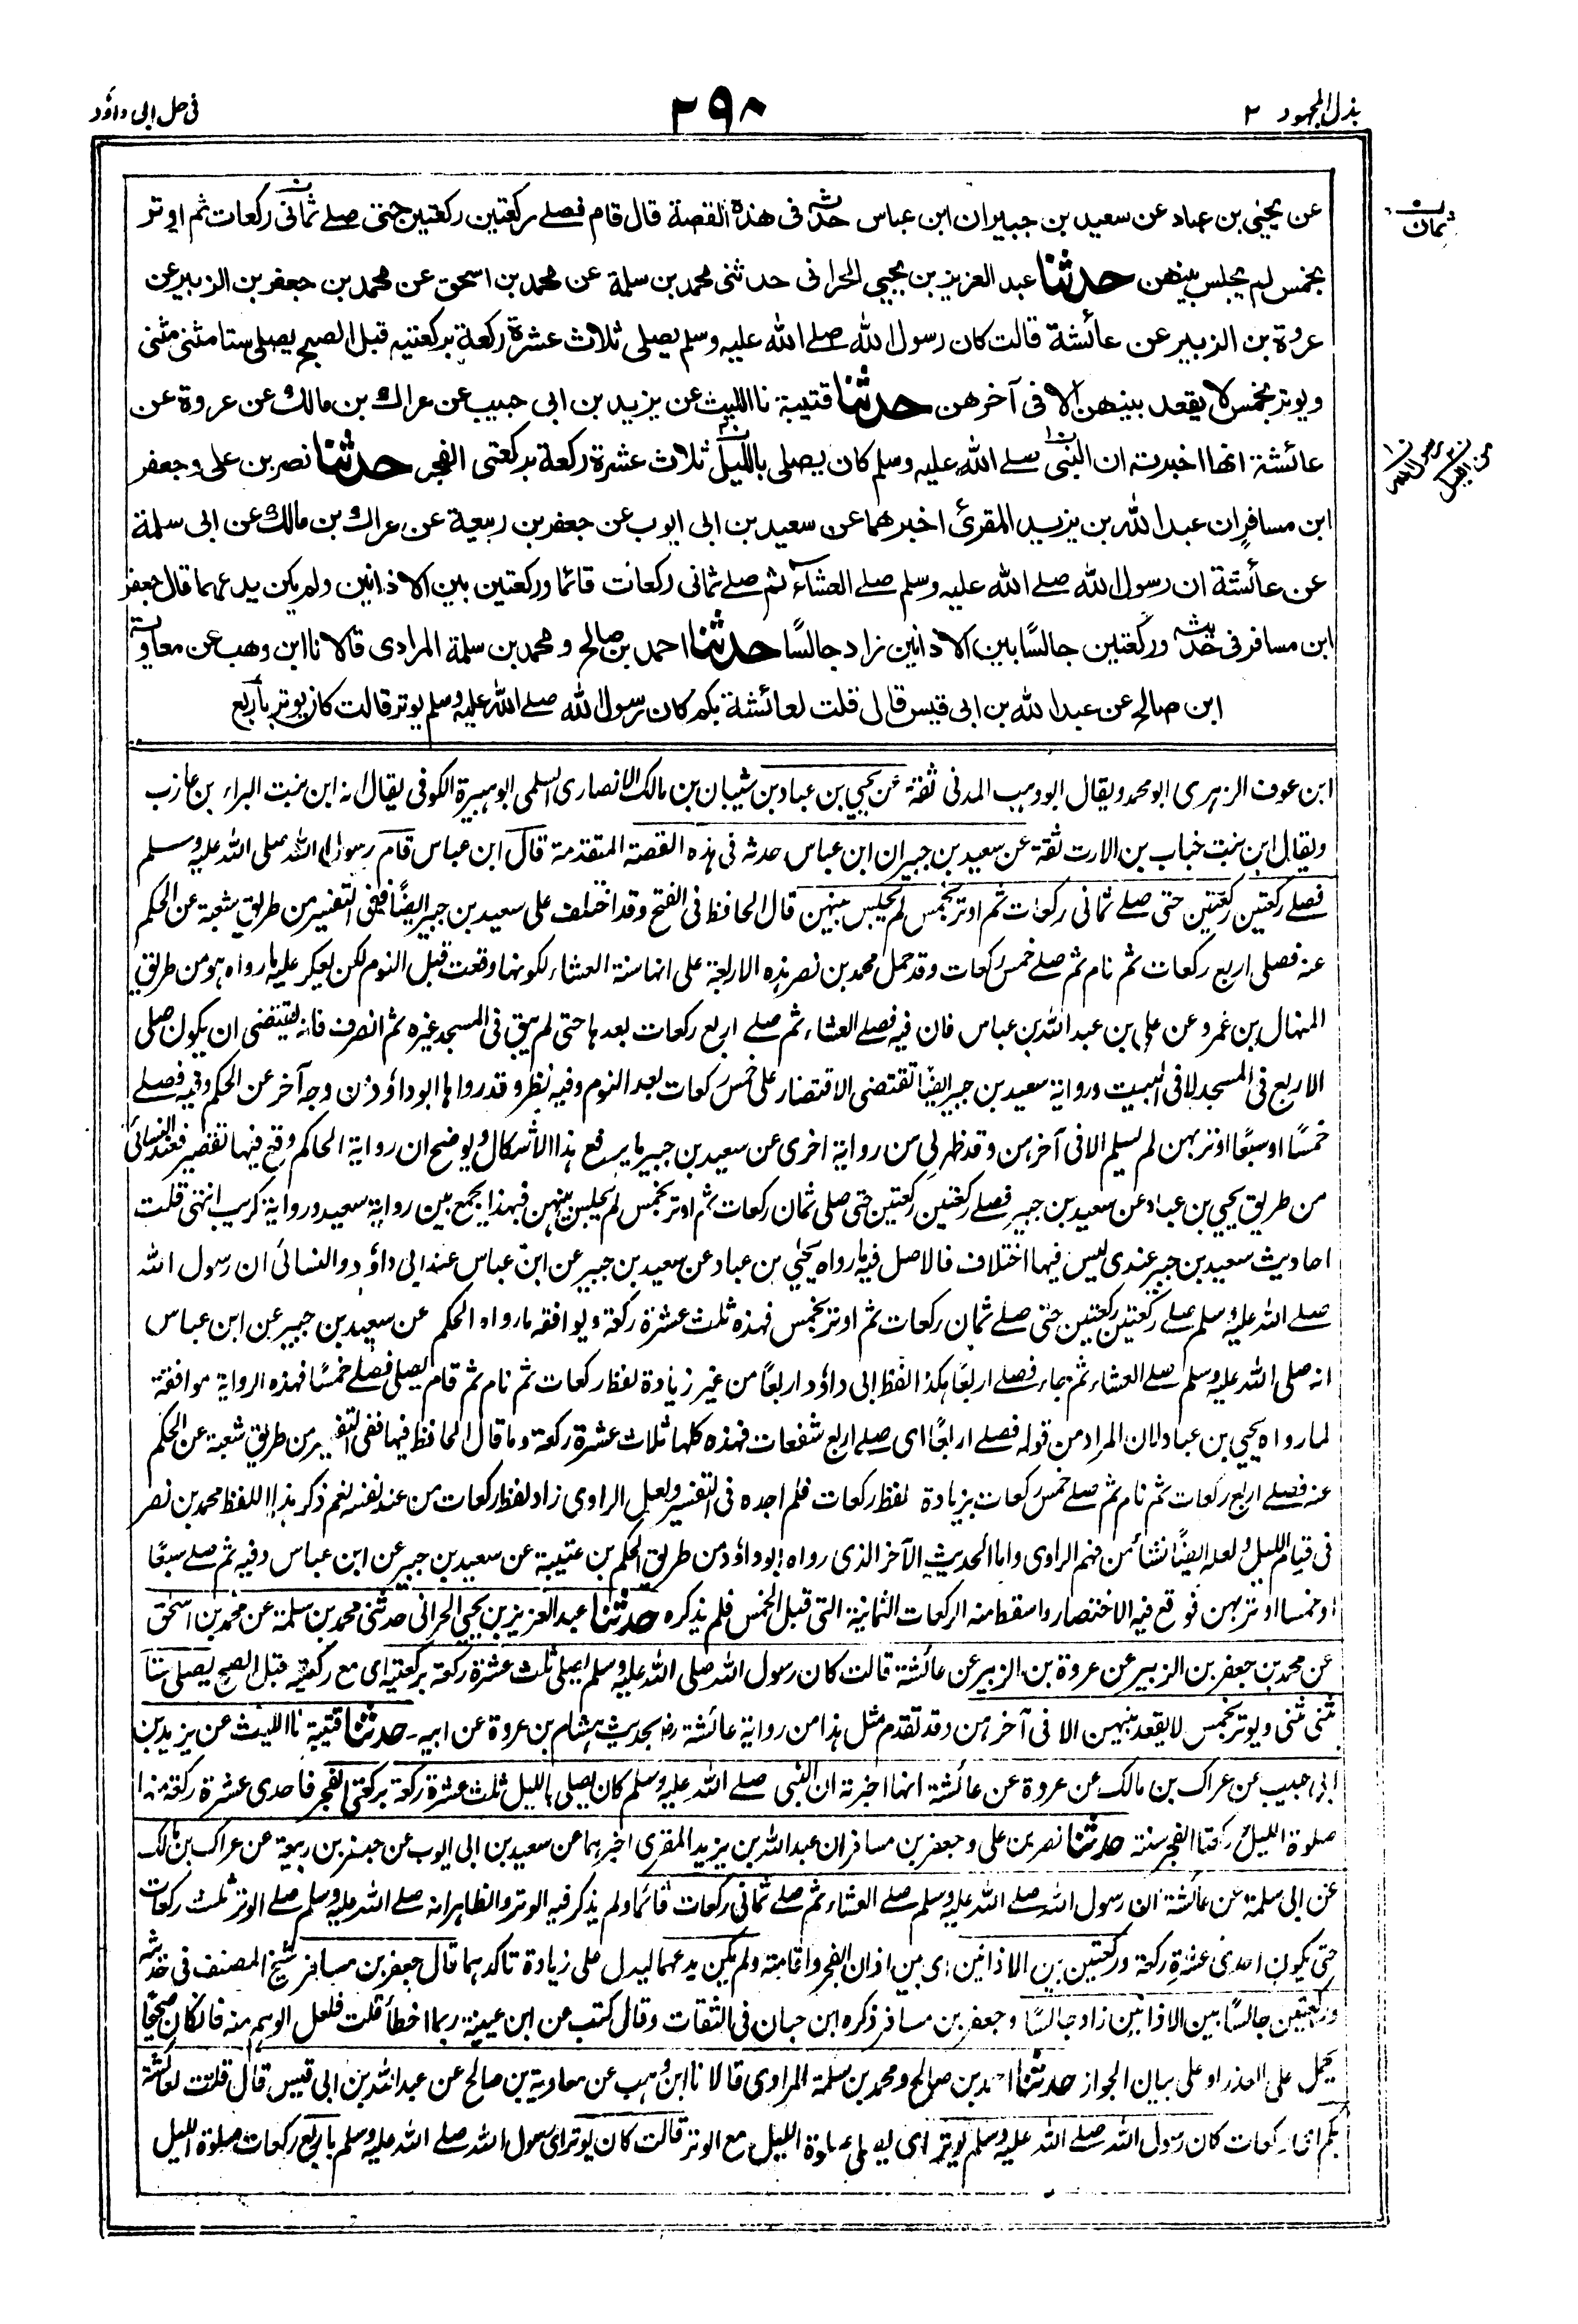 بذل المجهود ٢
٢٩٨
فى حل ابى داؤد
عن يحيى بن عباد عن سعيد بن جبير ان ابن عباس حدثه فى هذه القصة قال قام فصلے ركعتين ركعتين حتى صلے ثمانى ركعات ثم اوتر
ثمان
بخمس لم يجلس بينهن حدثنا عبد العزيز بن يحيى الحرانى حدثنى محمد بن سلمة عن محمد بن اسحق عن محمد بن جعفر بن الزبير عن
عروة بن الزبير عن عائشة قالت كان رسول الله صلے الله عليه وسلم يصلى ثلاث عشرة ركعة بركعتيه قبل الصبح يصلى ستا مثنى مثنى
ويوتر بخمس لا يقعد بينهن الا فى آخرهن حدثنا قتيبة نا الليث عن يزيد بن ابى حبيب عن عراك بن مالك عن عروة عن
عائشة انها اخبرته ان النبى صلے الله عليه وسلم كان يصلى بالليل ثلاث عشرة ركعة بركعتى الفجر حدثنا نصر بن على وجعفر
رسول الله
من الليل
ابن مسافر ان عبد الله بن يزيد المقرئ اخبرهما عن سعيد بن ابى ايوب عن جعفر بن ربيعة عن عراك بن مالك عن ابى سلمة
عن عائشة ان رسول الله صلے الله عليه وسلم صلے العشاء ثم صلے ثمانى ركعات قائما وركعتين بين الاذانين ولم يكن يدعهما قال جعفر
ابن مسافر فى حديثه وركعتين جالسًا بين الاذانين زاد جالسًا حدثنا احمد بن صالح و محمد بن سلمة المرادى قالا نا ابن وهب عن معاوية
ابن صالح عن عبد الله بن ابى قيس قال قلت لعائشة بكم كان رسول الله صلے الله عليه وسلم يوتر قالت كان يوتر باربع
ابن عوف الزهرى ابو محمد ويقال ابو وهب المدنى ثقة عن يحيى بن عباد بن شيبان بن مالك الانصارى السلمى ابو هبيرة الكوفى يقال انه ابن بنت البراء بن عازب
ويقال ابن بنت خباب بن الارت ثقة عن سعيد بن جبير ان ابن عباس حدثه فى هذه القصة المتقدمة قال ابن عباس قام رسول الله صلى الله عليه وسلم
فصلے ركعتين ركعتين حتى صلے ثمانى ركعات ثم اوتر بخمس لم يجلس بينهن قال الحافظ فى الفتح وقد اختلف على سعيد بن جبير ايضًا ففى التفسير من طريق شعبة عن الحكم
عنه فصلى اربع ركعات ثم نام ثم صلے خمس ركعات وقد حمل محمد بن نصر هذه الاربعة على انها سنة العشاء لكونها وقعت قبل النوم لكن يعكر عليه ما رواه هو من طريق
المنهال بن عمرو عن على بن عبد الله بن عباس فان فيه فصلے العشاء ثم صلے اربع ركعات بعدها حتى لم يبق فى المسجد غيره ثم انصرف فانه يقتضى ان يكون صلى
الاربع فى المسجد لا فى البيت ورواية سعيد بن جبير ايضًا تقتضى الاقتصار على خمس ركعات بعد النوم وفيه نظر وقد رواها ابو داؤد من وجه آخر عن الحكم وفيه فصلے
خمسًا او سبعًا اوتر بهن لم يسلم الا فى آخرهن وقد ظهر لى من رواية اخرى عن سعيد بن جبير ما يرفع هذا الاشكال ويوضح ان رواية الحاكم وقع فيها تقصير فعند النسائى
من طريق يحيى بن عباد عن سعيد بن جبير فصلے ركعتين ركعتين حتى صلى ثمان ركعات ثم اوتر بخمس لم يجلس بينهن فبهذا يجمع بين رواية سعيد ورواية كريب انتهى قلت
احاديث سعيد بن جبير عندى ليس فيها اختلاف فالاصل فيه ما رواه يحيى بن عباد عن سعيد بن جبير عن ابن عباس عند ابى داؤد والنسائى ان رسول الله
صلے الله عليه وسلم صلے ركعتين ركعتين حتى صلے ثمان ركعات ثم اوتر بخمس فهذه ثلث عشرة ركعة ويوافقه ما رواه الحكم عن سعيد بن جبير عن ابن عباس
انه صلى الله عليه وسلم صلے العشاء ثم جاء فصلے اربعًا هكذا لفظ ابى داؤد اربعًا من غير زيادة لفظ ركعات ثم نام ثم قام يصلى فصلے خمسًا فهذه الرواية موافقة
لما رواه يحيى بن عباد لان المراد من قوله فصلے اربعًا اى صلے اربع شفعات فهذه كلها ثلاث عشرة ركعة وما قال الحافظ فيها ففى التفسير من طريق شعبة عن الحكم
عنه فصلے اربع ركعات ثم نام ثم صلے خمس ركعات بزيادة لفظ ركعات فلم اجده فى التفسير ولعل الراوى زاد لفظ ركعات من عند نفسه نعم ذكر هذا اللفظ محمد بن نصر
فى قيام الليل ولعله ايضًا نشأ من فهم الراوى واما الحديث الآخر الذى رواه ابو داؤد من طريق الحكم بن عتيبة عن سعيد بن جبير عن ابن عباس وفيه ثم صلے سبعًا
او خمسا اوتر بهن فوقع فيه الاختصار واسقط منه الركعات الثمانية التى قبل الخمس فلم يذكره حدثنا عبد العزيز بن يحيى الحرانى حدثنى محمد بن سلمة عن محمد بن اسحق
عن محمد بن جعفر بن الزبير عن عروة بن الزبير عن عائشة قالت كان رسول الله صلى الله عليه وسلم يصلى ثلث عشرة ركعة بركعتيه اى مع ركعتيه قبل الصبح يصلى ستا
مثنى مثنى ويوتر بخمس لا يقعد بينهن الا فى آخرهن وقد تقدم مثل هذا من رواية عائشة رضـ بحديث هشام بن عروة عن ابيه ۔ حدثنا قتيبة نا الليث عن يزيد بن
ابى حبيب عن عراك بن مالك عن عروة عن عائشة انها اخبرته ان النبى صلے الله عليه وسلم كان يصلى بالليل ثلث عشرة ركعة بركعتى الفجر فاحدى عشرة ركعة منها
صلوة الليل و ركعتا الفجر سنة حدثنا نصر بن على وجعفر بن مسافر ان عبد الله بن يزيد المقرى اخبرهما عن سعيد بن ابى ايوب عن جعفر بن ربيعة عن عراك بن مالك
عن ابى سلمة عن عائشة ان رسول الله صلے الله عليه وسلم صلے العشاء ثم صلے ثمانى ركعات قائما ولم يذكر فيه الوتر والظاهر انه صلے الله عليه وسلم صلے الوتر ثلث ركعات
حتى يكون احدى عشرة ركعة وركعتين بين الاذانين اى بين اذان الفجر واقامته ولم يكن يدعهما ليدل على زيادة تاكدهما قال جعفر بن مسافر شيخ المصنف فى حديثه
وركعتين جالسًا بين الاذانين زاد جالسًا وجعفر بن مسافر ذكره ابن حبان فى الثقات وقال كتب عن ابن عيينة ربما اخطأ قلت فلعل الوهم منه فان كان صحيحًا
يحمل على العذر او على بيان الجواز حدثنا احمد بن صالح ومحمد بن سلمة المرادى قالا نا ابن وهب عن معاوية بن صالح عن عبد الله بن ابى قيس قال قلت لعائشة
بكم اى ركعات كان رسول الله صلے الله عليه وسلم يوتر اى يصلى صلوة الليل مع الوتر قالت كان يوتر اى رسول الله صلے الله عليه وسلم باربع ركعات صلوة الليل